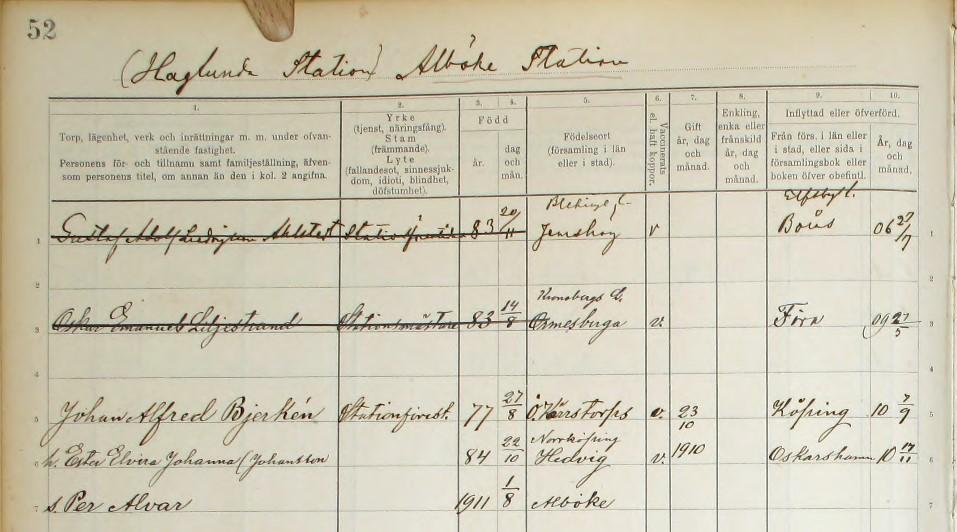 52
(Haglunda Station) Alböke Station
1. 2. 3. 4. 5. 6. 7. 8. 9. 10.
Torp, lägenhet, verk och inrättningar m. m. under ofvanstående fastighet.
Personens för- och tillnamn samt familjeställning, äfvensom personens titel, om annan än den i kol. 2 angifna.
Yrke (tjenst, näringsfång). Stam (främmande). Lyte (fallandesot, sinnessjukdom, idioti, blindhet, döfstumhet).
Född
år. dag och mån.
Födelseort (församling i län eller i stad).
Vaccinerats el. haft koppor.
Gift år, dag och månad.
Enkling, enka eller frånskild år, dag och månad.
Inflyttad eller öfverförd.
Från förs. i län eller i stad, eller sida i församlingsbok eller boken öfver obefintl.
År, dag och månad.
Blekinge l. Elfsby l.
1 Gustaf Adolf 83 20/11 Jemshog v Borås 06 27/7 1
2 2
Kronobergs L.
3 Oskar Emanuel Liljestrand Stationsmästare 83 14/8 Ormesberga v. Föra 09 27/5 3
4 4
5 Johan Alfred Bjerkén Stationförest. 77 27/8 v. 23/10 Köping 10 7/9 5
Norrköping
6 h. Ester Elvira Johanna (Johansson 84 22/10 Hedvig v. 1910 Oskarshamn 10 17/11 6
7 s. Per Alvar 1911 1/8 Alböke 7